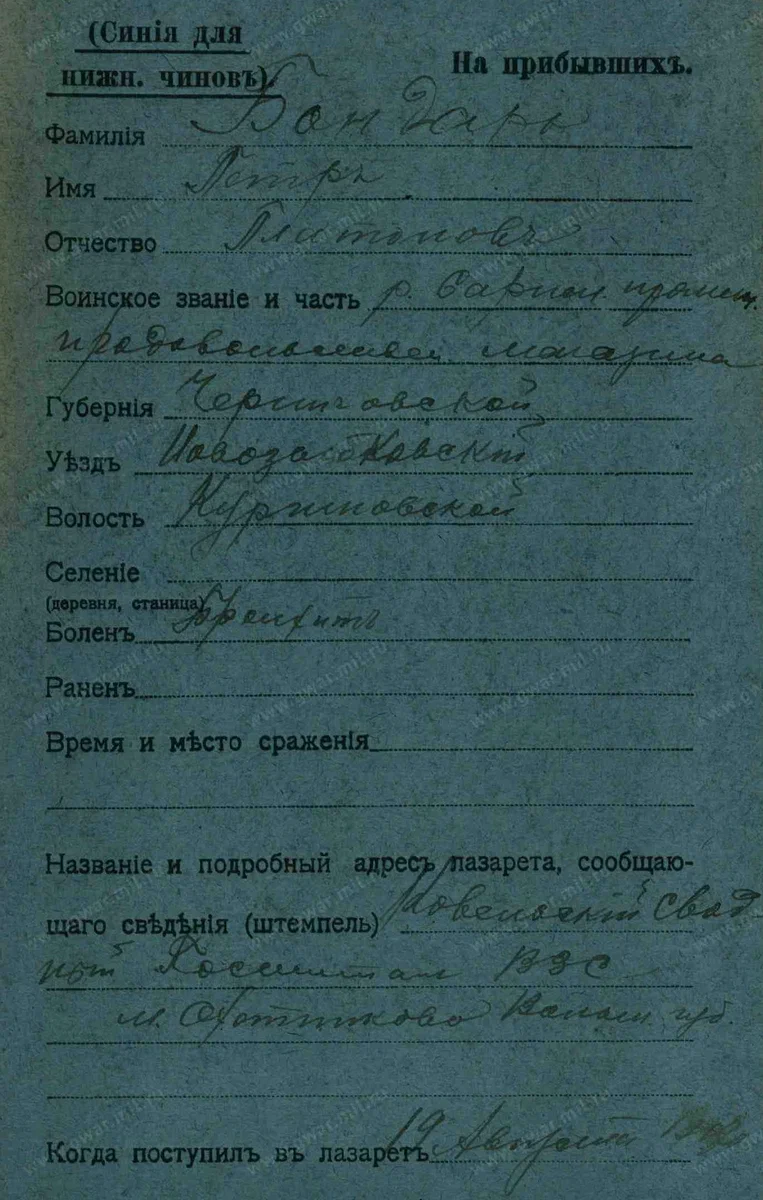 (Синія для
нижн. чиновъ).
На прибывшихъ.
Фамилія Бондарь
Имя Петръ
Отчество Платоновъ
Воинское званіе и часть р. Сарнен.
продовольственн. магазина
Губернія Черниговской
Уѣздъ Новозыбковскій
Волость
Селеніе
(деревня, станица)
Боленъ Бронхитъ
Раненъ
Время и мѣсто сраженія
Названіе и подробный адресъ лазарета, сообщаю-
щаго свѣдѣнія (штемпель) Ковельскій Свод
ный Госпиталь ВЗС
м. Охотниково Волын. губ.
Когда поступилъ въ лазаретъ 19 Августа